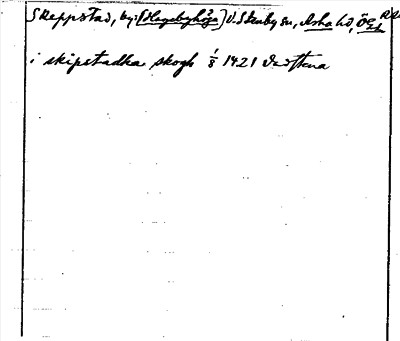 Skeppstad, by: [Hagebyhöga] V. Stenby sn, Aska hd, Ög
i skipstadka skogh 1/8 1421 Vadstena